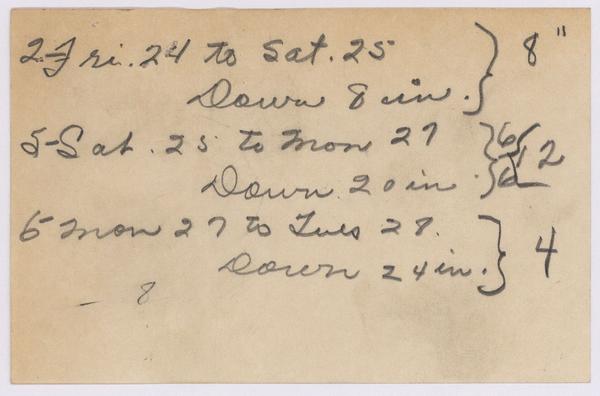 2-Fri. 24 to Sat. 25 } 8"
Down 8 in.
5-Sat. 25 to Mon 27 } 6 12
Down 20 in. } 6
6 Mon 27 to Tues 28. } 4
Down 24 in.
- 8